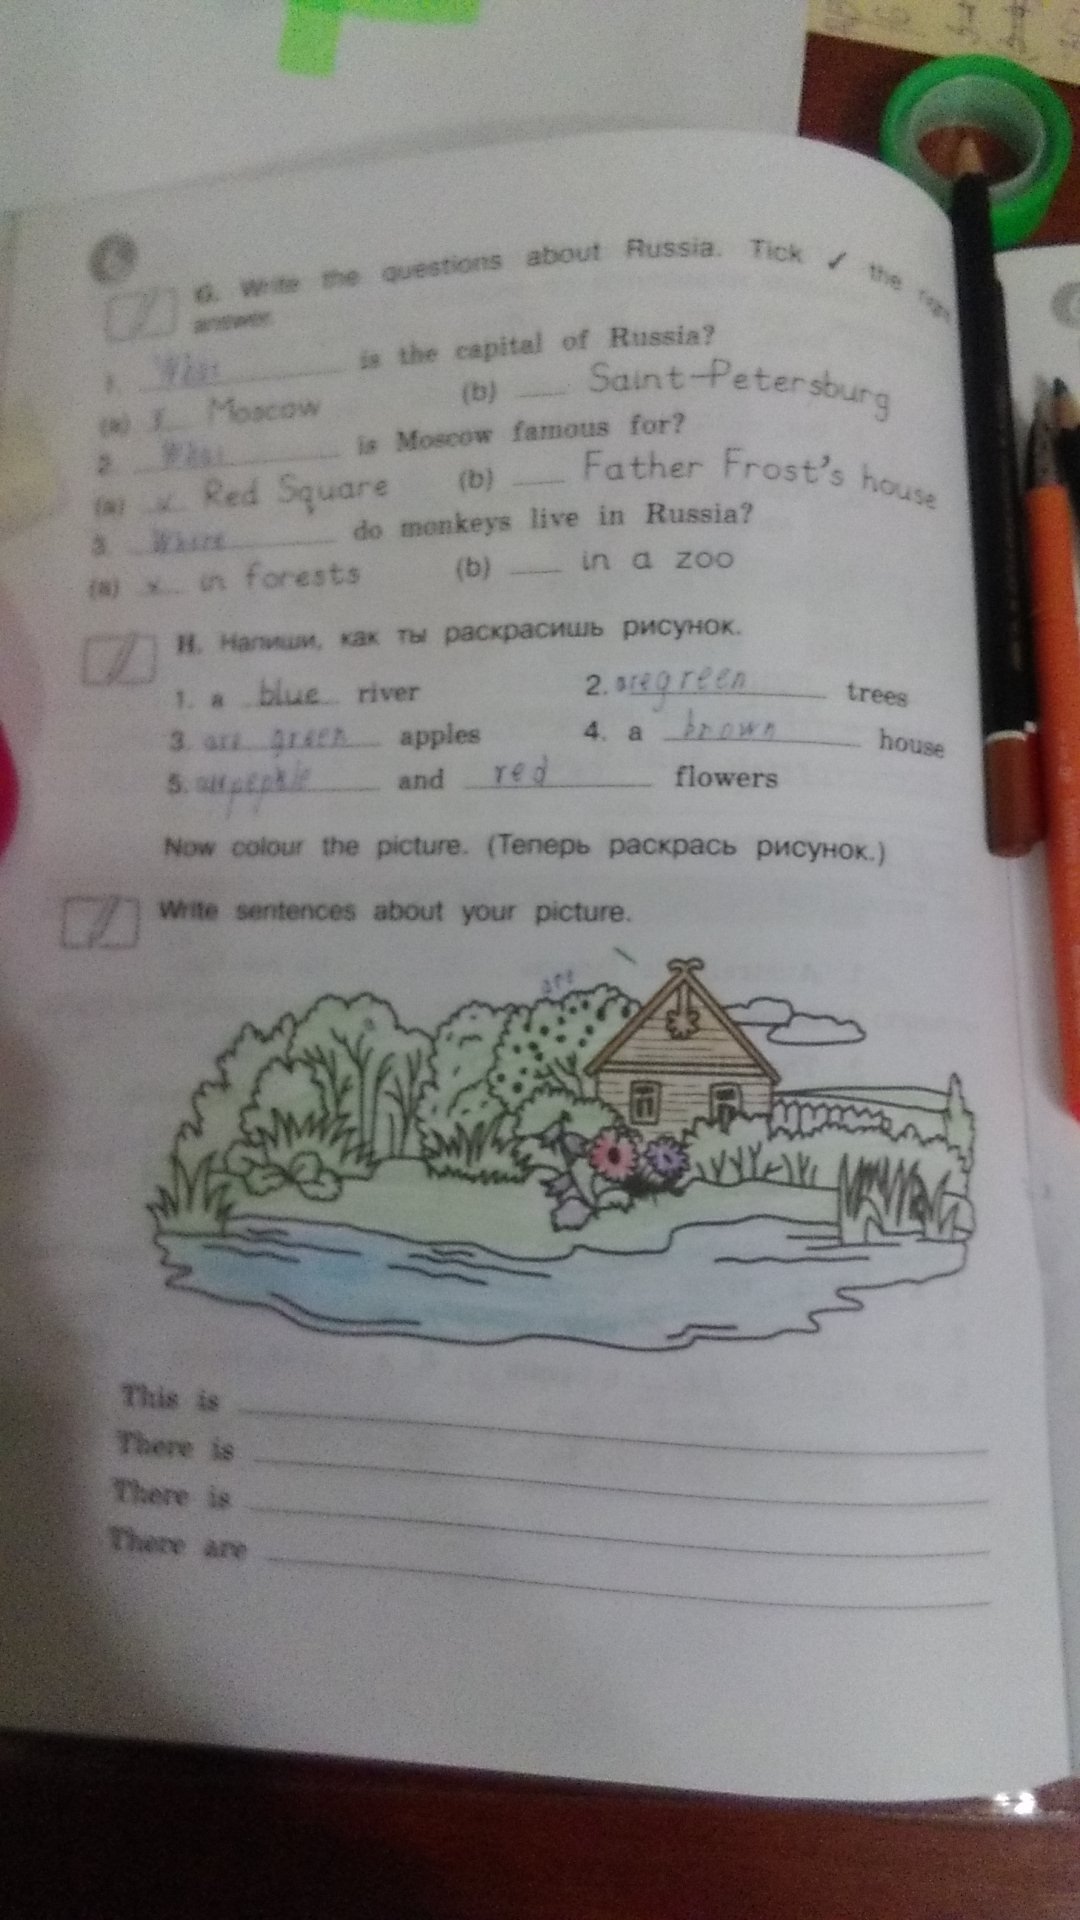 G. Write the questions about Russia. Tick ✓ the right
answer.
1. What is the capital of Russia?
(a) x Moscow (b) ___ Saint-Petersburg
2. What is Moscow famous for?
(a) x Red Square (b) ___ Father Frost's house
3. Where do monkeys live in Russia?
(a) x in forests (b) ___ in a zoo
H. Напиши, как ты раскрасишь рисунок.
1. a blue river 2. are green trees
3. are green apples 4. a brown house
5. and red flowers
Now colour the picture. (Теперь раскрась рисунок.)
Write sentences about your picture.
are
This is
There is
There is
There are